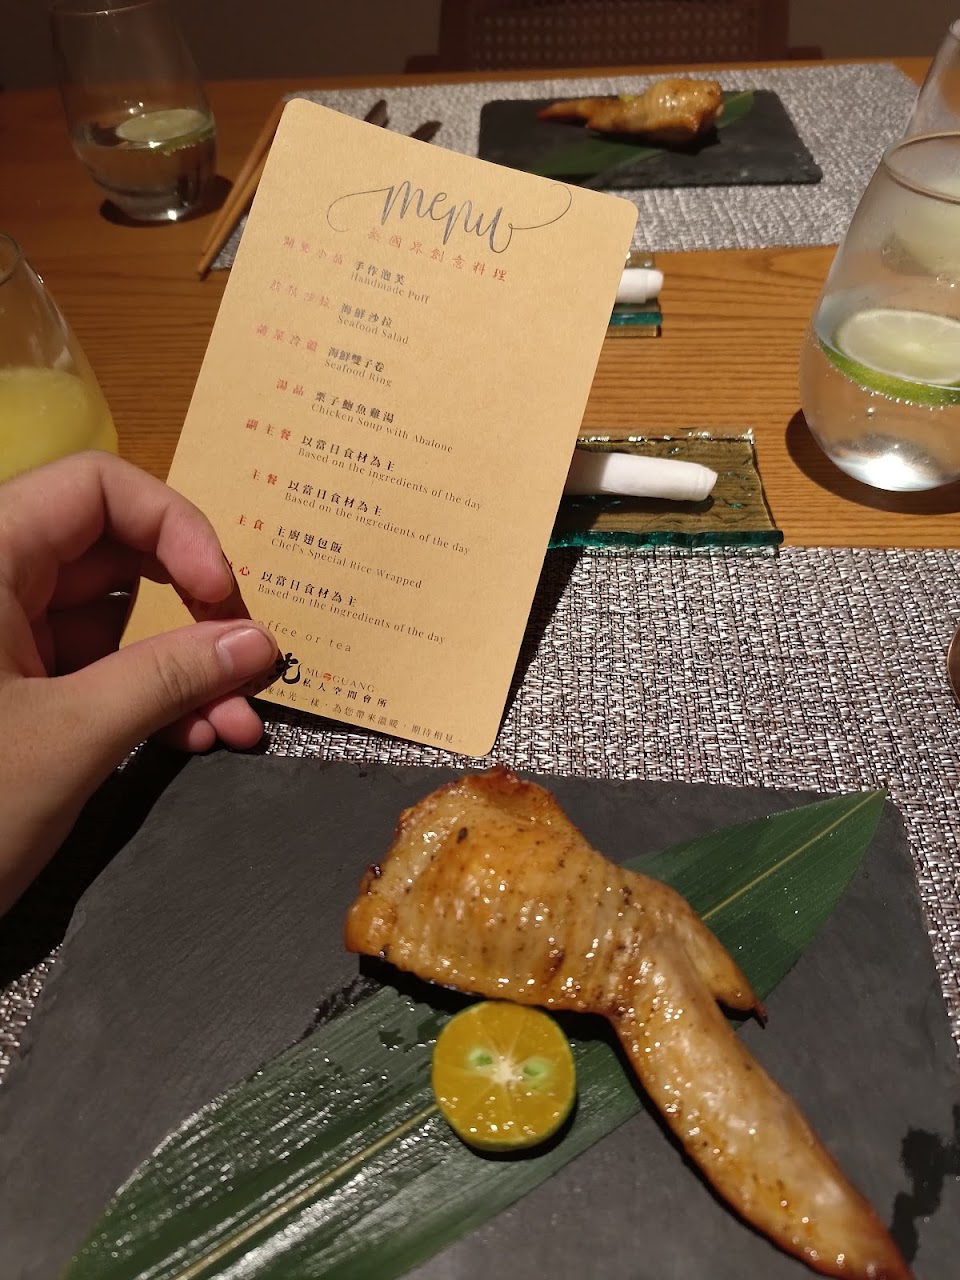 menu
無國界創意料理
開胃小品 手作泡芙
Handmade Puff
沙拉 海鮮沙拉
Seafood Salad
冷盤 海鮮雙子卷
Seafood Ring
湯品 栗子鮑魚雞湯
Chicken Soup with Abalone
副主餐 以當日食材為主
Based on the ingredients of the day
主餐 以當日食材為主
Based on the ingredients of the day
主食 主廚翅包飯
Chef's Special Rice Wrapped
心 以當日食材為主
Based on the ingredients of the day
offee or tea
光 MU GUANG
私人空間會所
像沐光一樣,為您帶來溫暖,期待相見~